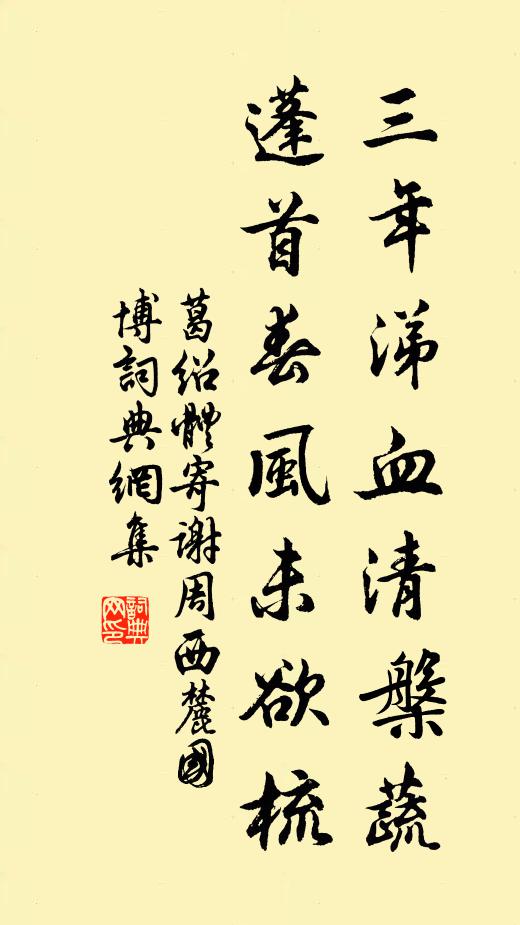 三年涕血清槃蔬
蓬首春風未欲梳
葛紹體寄謝周西麓國
博詞典網集
詞典网印